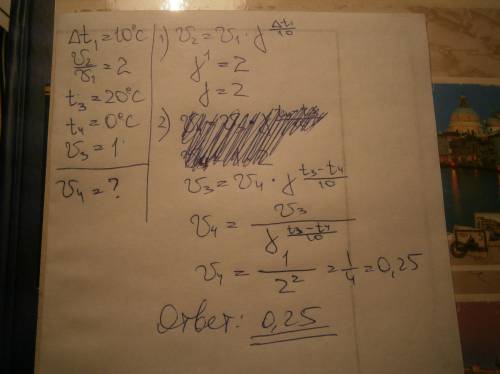 Δt₁=10°C
υ₂/υ₁=2
t₃=20°C
t₄=0°C
υ₃=1
υ₄=?
1) υ₂=υ₁·γ^(Δt₁/10)
γ¹=2
γ=2
2)
υ₃=υ₄·γ^((t₃-t₄)/10)
υ₄=υ₃/γ^((t₃-t₄)/10)
υ₄=1/2²=1/4=0,25
Ответ: 0,25